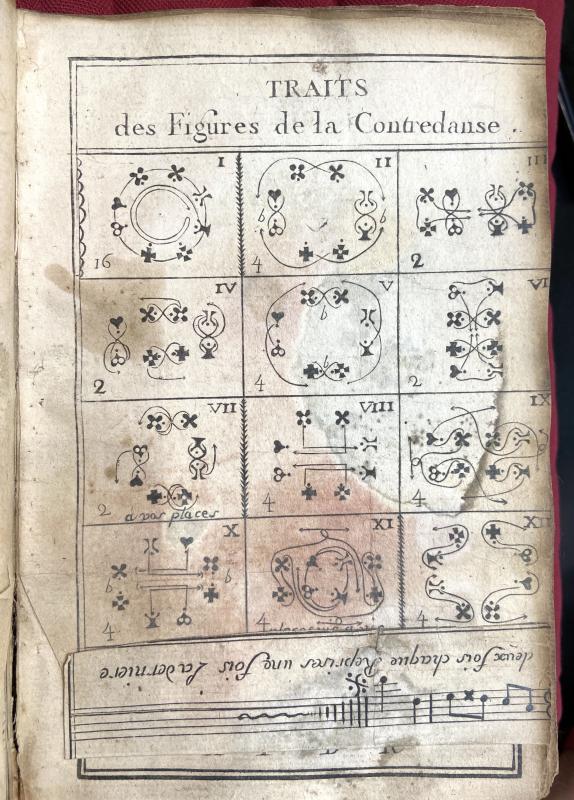 TRAITS
des Figures de la Contredanse .
I
II
III
16
b
b
4
2
IV
V
VI
b
b
2
4
2
VII
VIII
IX
2
4
4
a vos places
X
XI
XII
b
b
4
4
4
deux fois chaque Reprises une fois La derniere